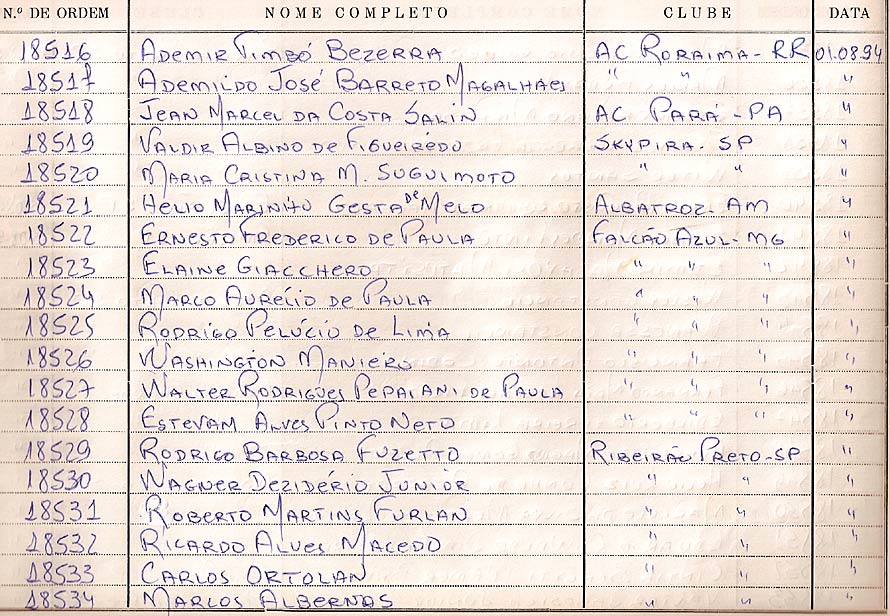 N.º DE ORDEM NOME COMPLETO CLUBE DATA
18516 Ademir Timbó Bezerra AC Roraima - RR 01.08.94
18517 Ademildo José Barreto Magalhães " " "
18518 Jean Marcel da Costa Salin AC Pará - PA "
18519 Valdir Albino de Figueirêdo Skypira - SP "
18520 Maria Cristina M. Suguimoto " " "
18521 Helio Marinho Gesta de Melo Albatroz - AM "
18522 Ernesto Frederico de Paula Falcão Azul - MG "
18523 Elaine Giacchero " " " "
18524 Marco Aurélio de Paula " " " "
18525 Rodrigo Pelúcio de Lima " " " "
18526 Washington Maniero " " " "
18527 Walter Rodrigues Pepaiani de Paula " " " "
18528 Estevam Alves Pinto Neto " " " "
18529 Rodrigo Barbosa Fuzetto Ribeirão Preto - SP "
18530 Wagner Dezidério Junior " " "
18531 Roberto Martins Furlan " " "
18532 Ricardo Alves Macedo " " "
18533 Carlos Ortolan " " "
18534 Marlos Albernas " " "